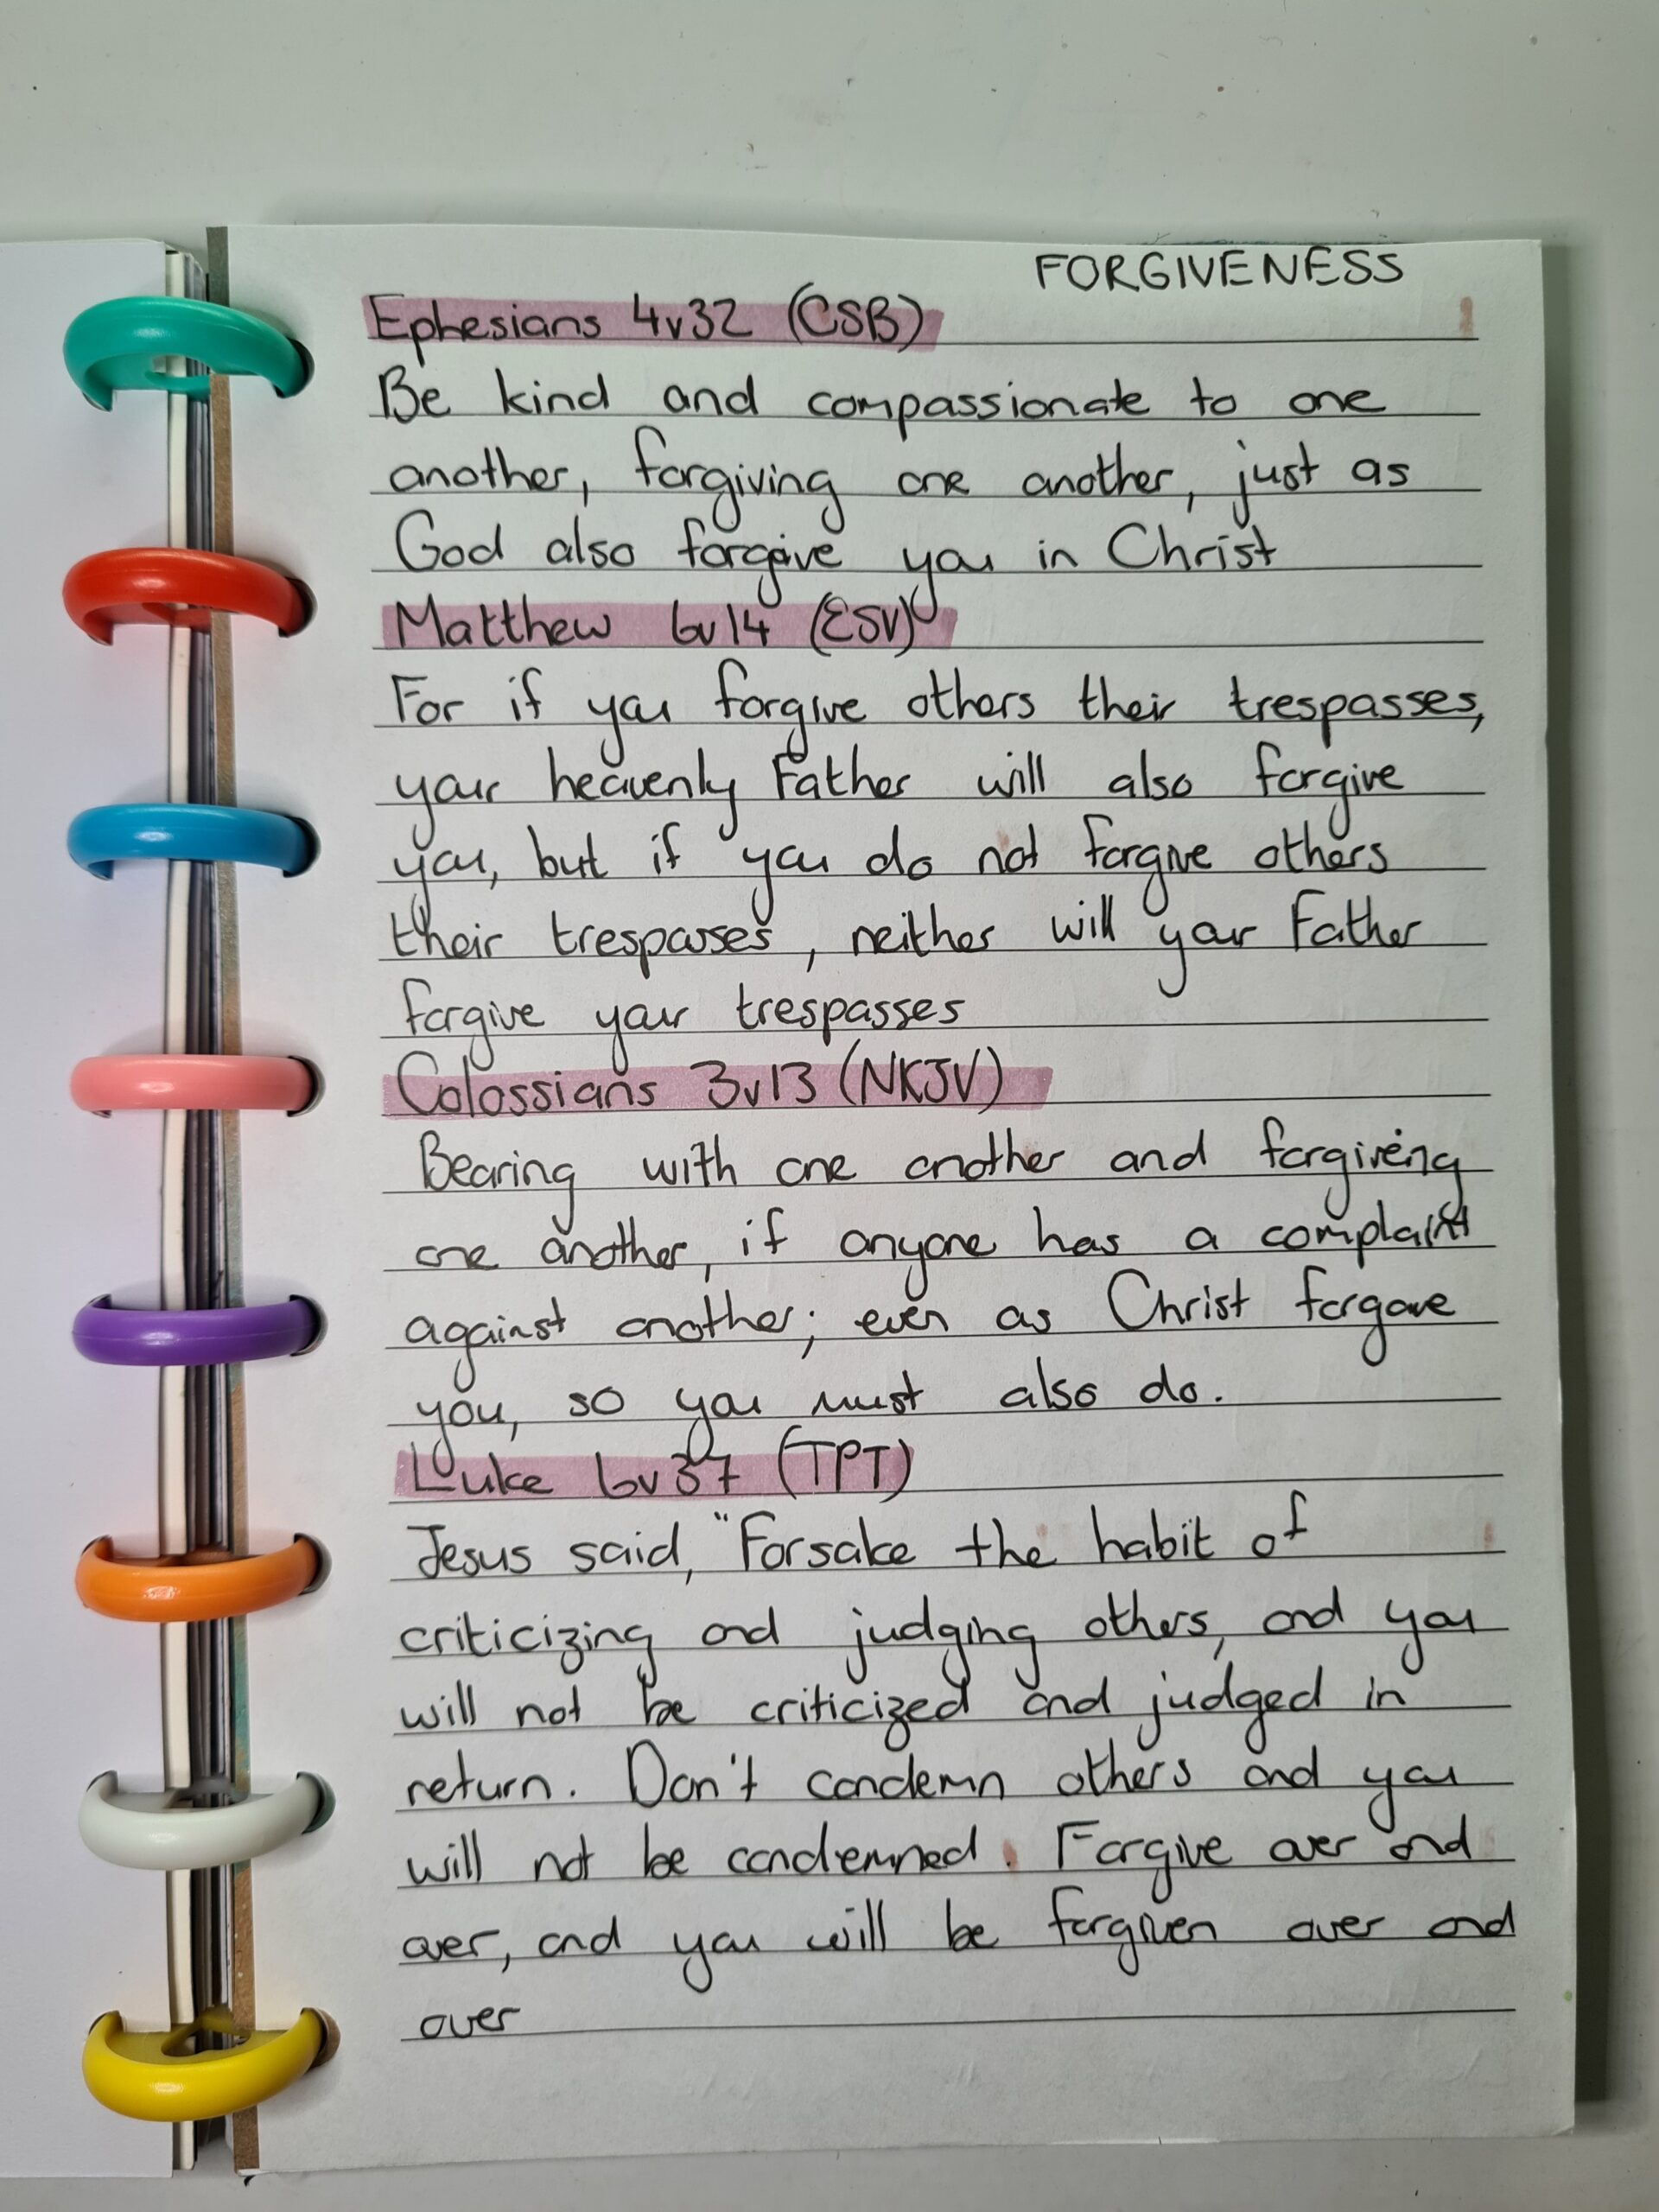 FORGIVENESS
Ephesians 4v32 (CSB)
Be kind and compassionate to one
another, forgiving one another, just as
God also forgave you in Christ
Matthew 6v14 (ESV)
For if you forgive others their trespasses,
your heavenly Father will also forgive
you, but if you do not forgive others
their trespasses, neither will your Father
forgive your trespasses
Colossians 3v13 (NKJV)
Bearing with one another and forgiving
one another, if anyone has a complaint
against another; even as Christ forgave
you, so you must also do.
Luke 6v37 (TPT)
Jesus said, "Forsake the habit of
criticizing and judging others, and you
will not be criticized and judged in
return. Don't condemn others and you
will not be condemned. Forgive over and
over, and you will be forgiven over and
over